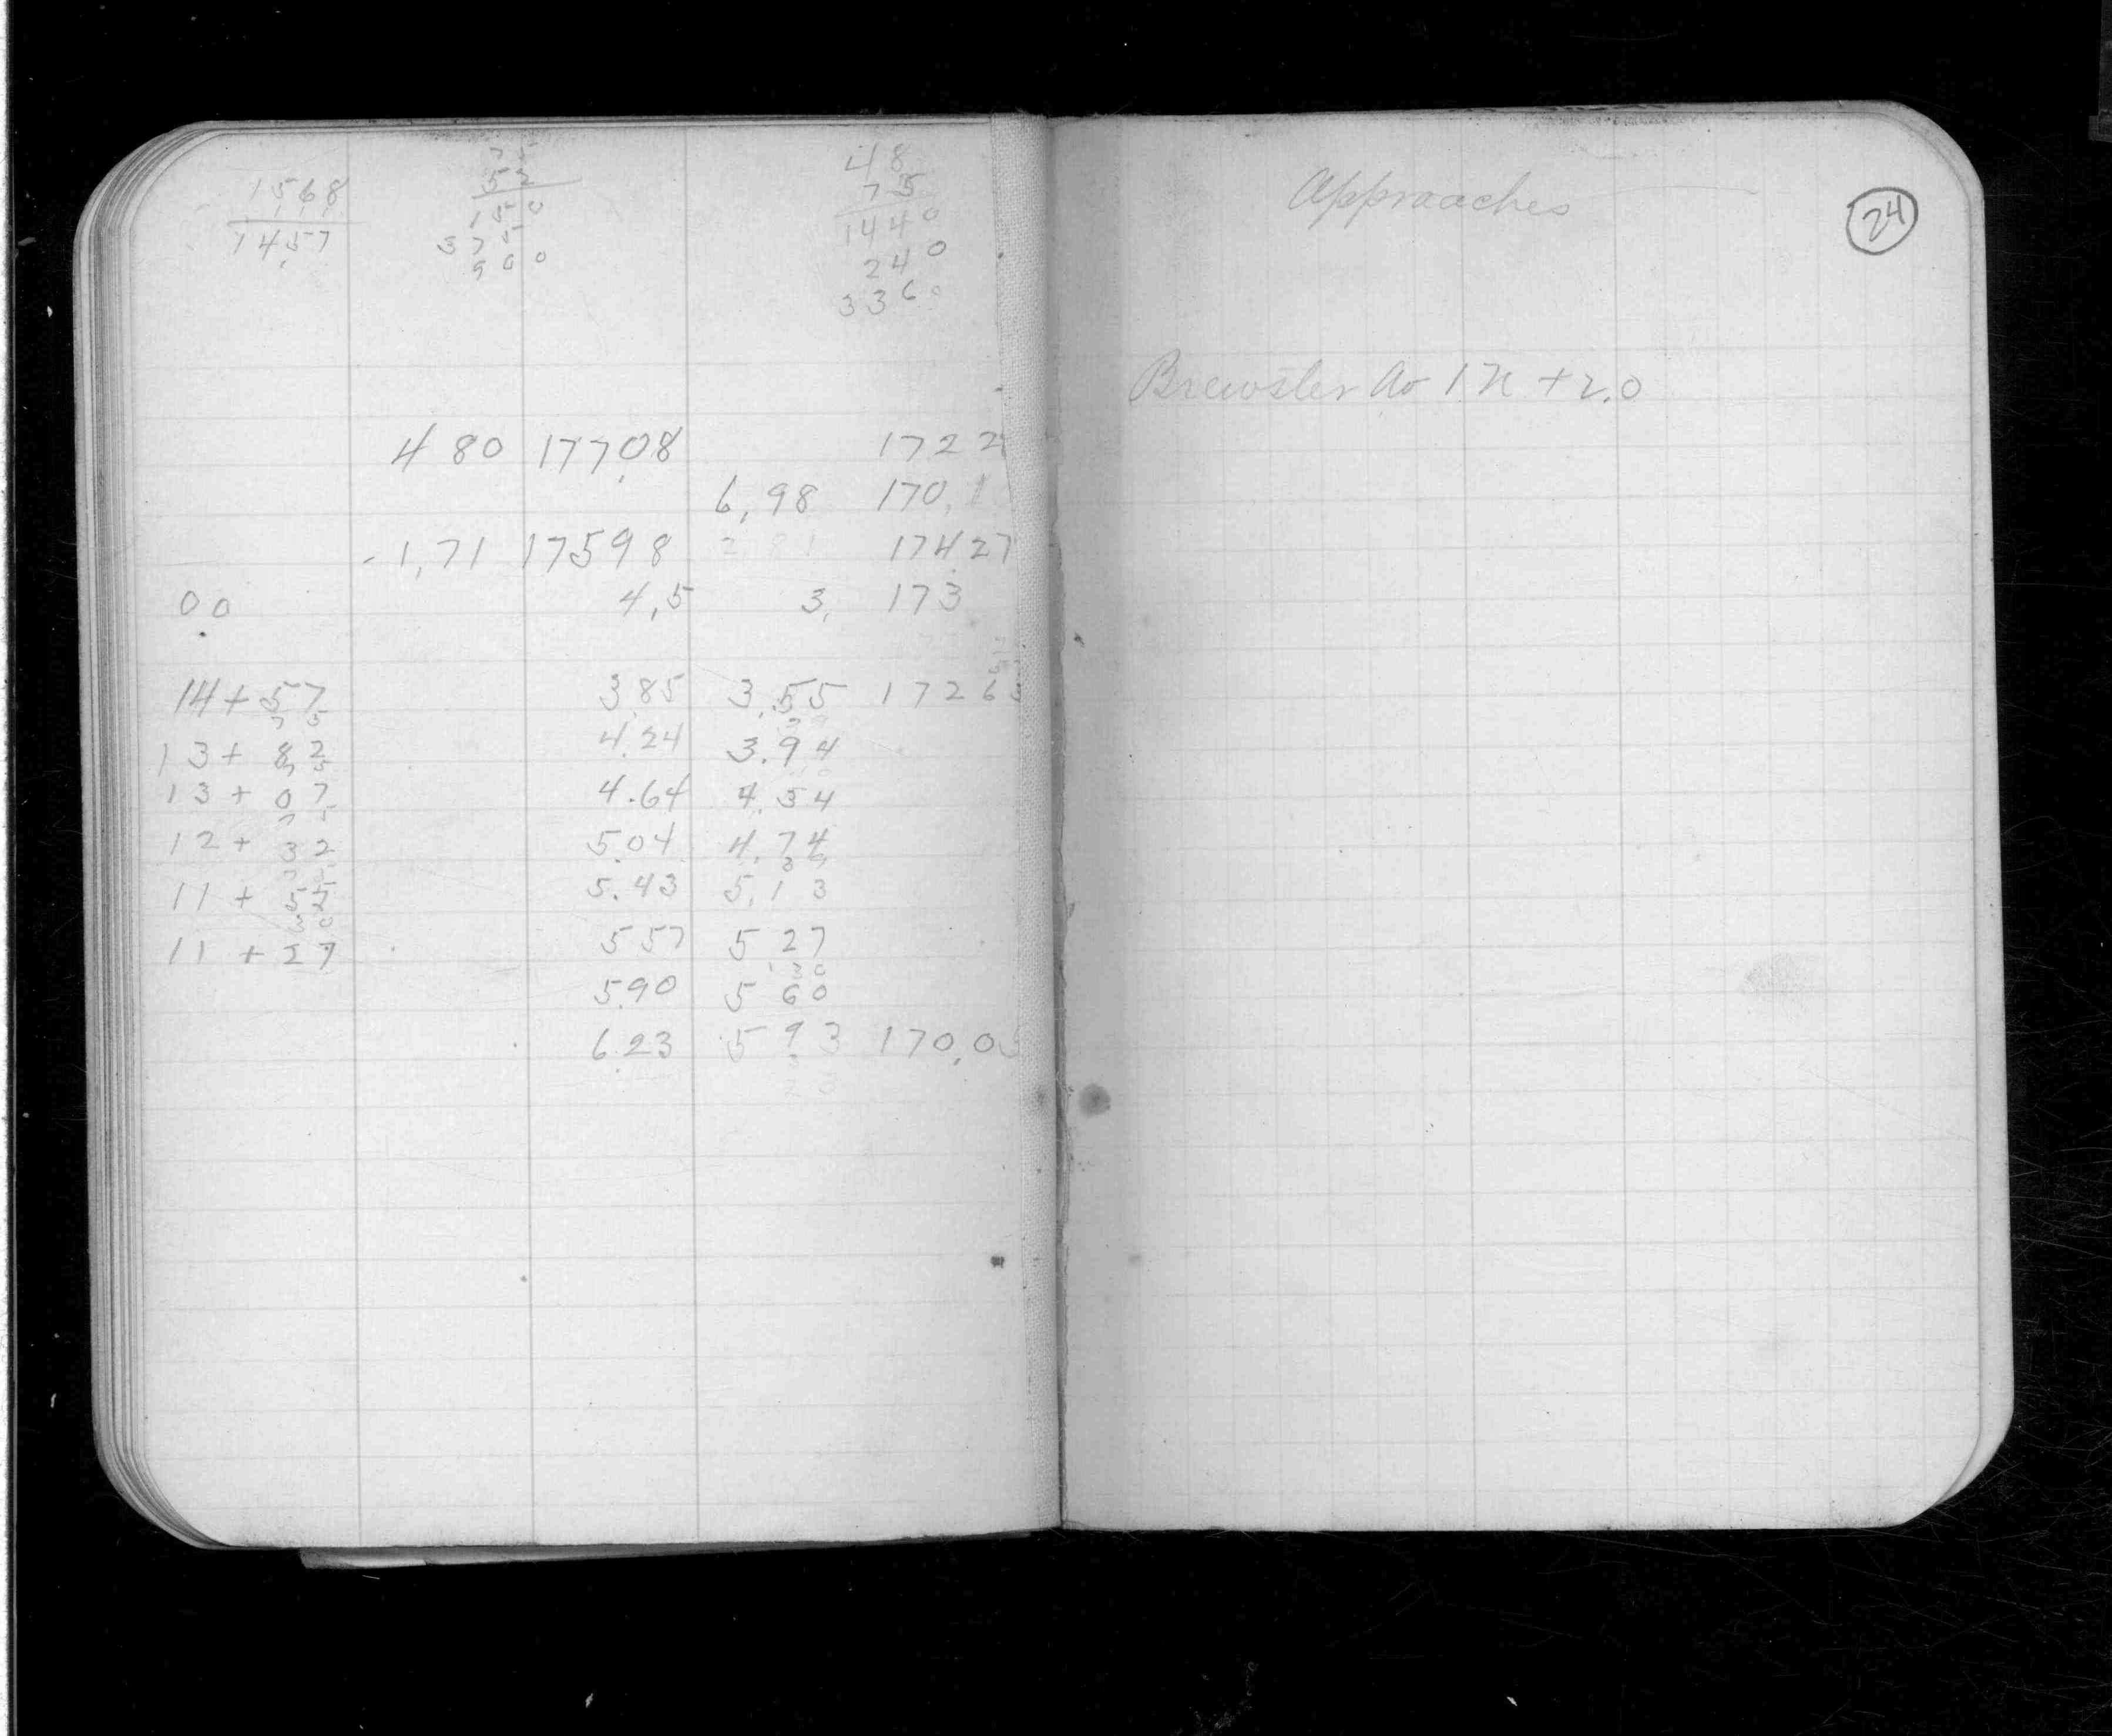 1568
1,1,1,1
1457
75
52
150
375
900
48
75
1440
240
3360
480 17708 1722
6,98 170,1
-1,71 17598 2 81 174.27
00 4,5 3, 173
14+57 3.85 3.55 1726
75
13+ 82 4.24 3.94
75
13+ 07 4.64 4.34
75
12+ 32 5.04 4.74
39
11+ 5 5.43 5.13
30
11 +27 557 5 27
30
5.90 5 60
6.23 5 93 170.0
Approaches
24
Brewster Av 1 N + 2.0